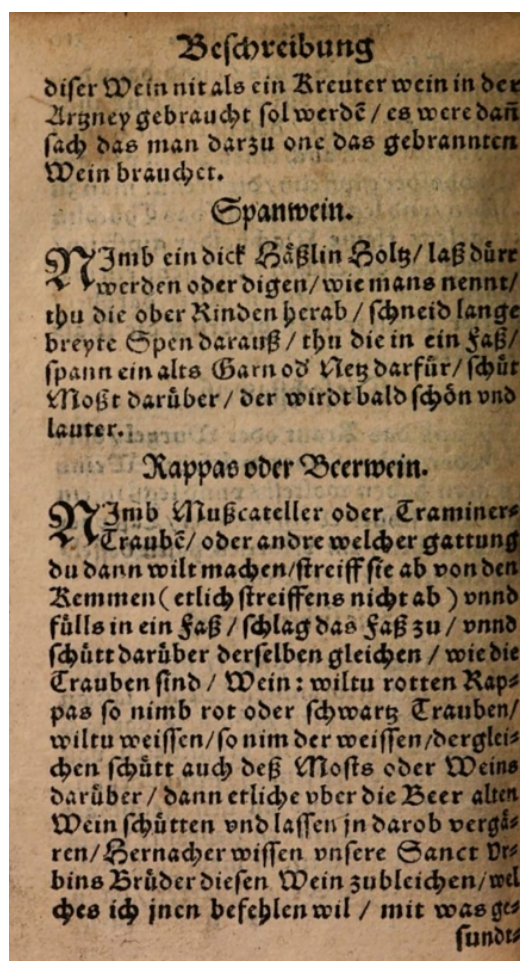 Beschreibung
diser Wein nit als ein Kreuter wein in der
Artzney gebraucht sol werdẽ / es were dañ
sach das man darzu one das gebrannten
Wein brauchet.
Spanwein.
NImb ein dick Häßlin Holtz / laß dürr
werden oder digen / wie mans nennt /
thu die ober Rinden herab / schneid lange
breyte Spen darauß / thu die in ein Faß /
spann ein alts Garn od' Netz darfür / schüt
Moßt darüber / der wirdt bald schön vnd
lauter.
Rappas oder Beerwein.
NImb Mußcateller oder Traminer⸗
Traubẽ / oder andre welcher gattung
du dann wilt machen / streiff sie ab von den
Kemmen ( etlich streiffens nicht ab ) vnnd
fülls in ein Faß / schlag das Faß zu / vnnd
schütt darüber derselben gleichen / wie die
Trauben sind / Wein : wiltu rotten Rap⸗
pas so nimb rot oder schwartz Trauben /
wiltu weissen / so nim der weissen / derglei⸗
chen schütt auch deß Mosts oder Weins
darüber / dann etliche vber die Beer alten
Wein schütten vnd lassen jn darob vergä⸗
ren / Hernacher wissen vnsere Sanct Vr⸗
bins Brüder diesen Wein zubleichen / wel
ches ich jnen befehlen wil / mit was ge⸗
sundt⸗